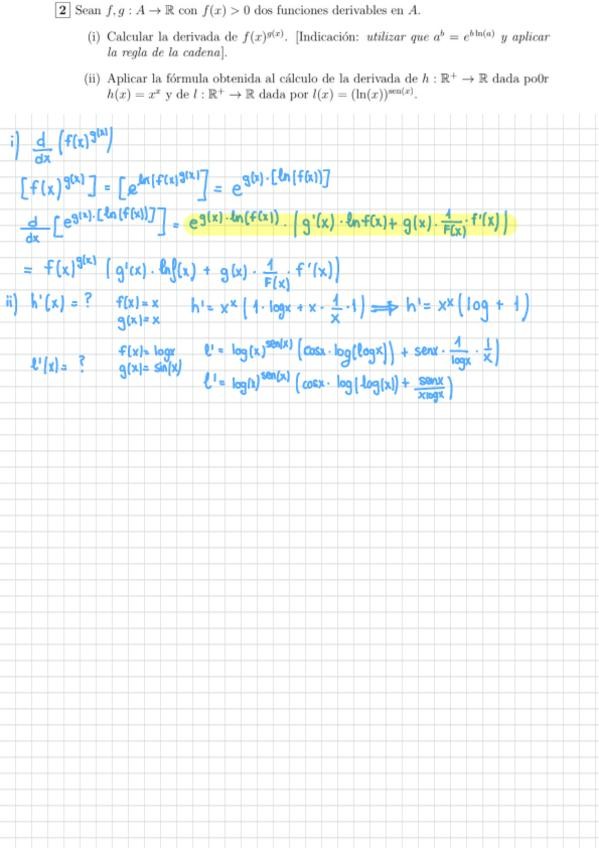 2 Sean f, g : A → ℝ con f(x) > 0 dos funciones derivables en A.
(i) Calcular la derivada de f(x)^{g(x)}. [Indicación: utilizar que a^b = e^{b ln(a)} y aplicar
la regla de la cadena].
(ii) Aplicar la fórmula obtenida al cálculo de la derivada de h : ℝ⁺ → ℝ dada po0r
h(x) = x^x y de l : ℝ⁺ → ℝ dada por l(x) = (ln(x))^{sen(x)}.
i) d/dx (f(x)^{g(x)})
[f(x)^{g(x)}] = [e^{ln(f(x)^{g(x)})}] = e^{g(x)·[ln(f(x))]}
d/dx [e^{g(x)·[ln(f(x))]}] = e^{g(x)·ln(f(x))} · (g'(x) · ln f(x) + g(x) · 1/F(x) · f'(x))
= f(x)^{g(x)} (g'(x) · ln f(x) + g(x) · 1/F(x) · f'(x))
ii) h'(x) = ? f(x) = x h' = x^x (1 · logx + x · 1/x · 1) ⟹ h' = x^x (log + 1)
g(x) = x
l'(x) = ? f(x) = logx l' = log(x)^{sen(x)} (cosx · log(logx)) + senx · 1/logx · 1/x)
g(x) = sin(x)
l' = log(x)^{sen(x)} (cosx · log(log(x)) + senx/xlogx)